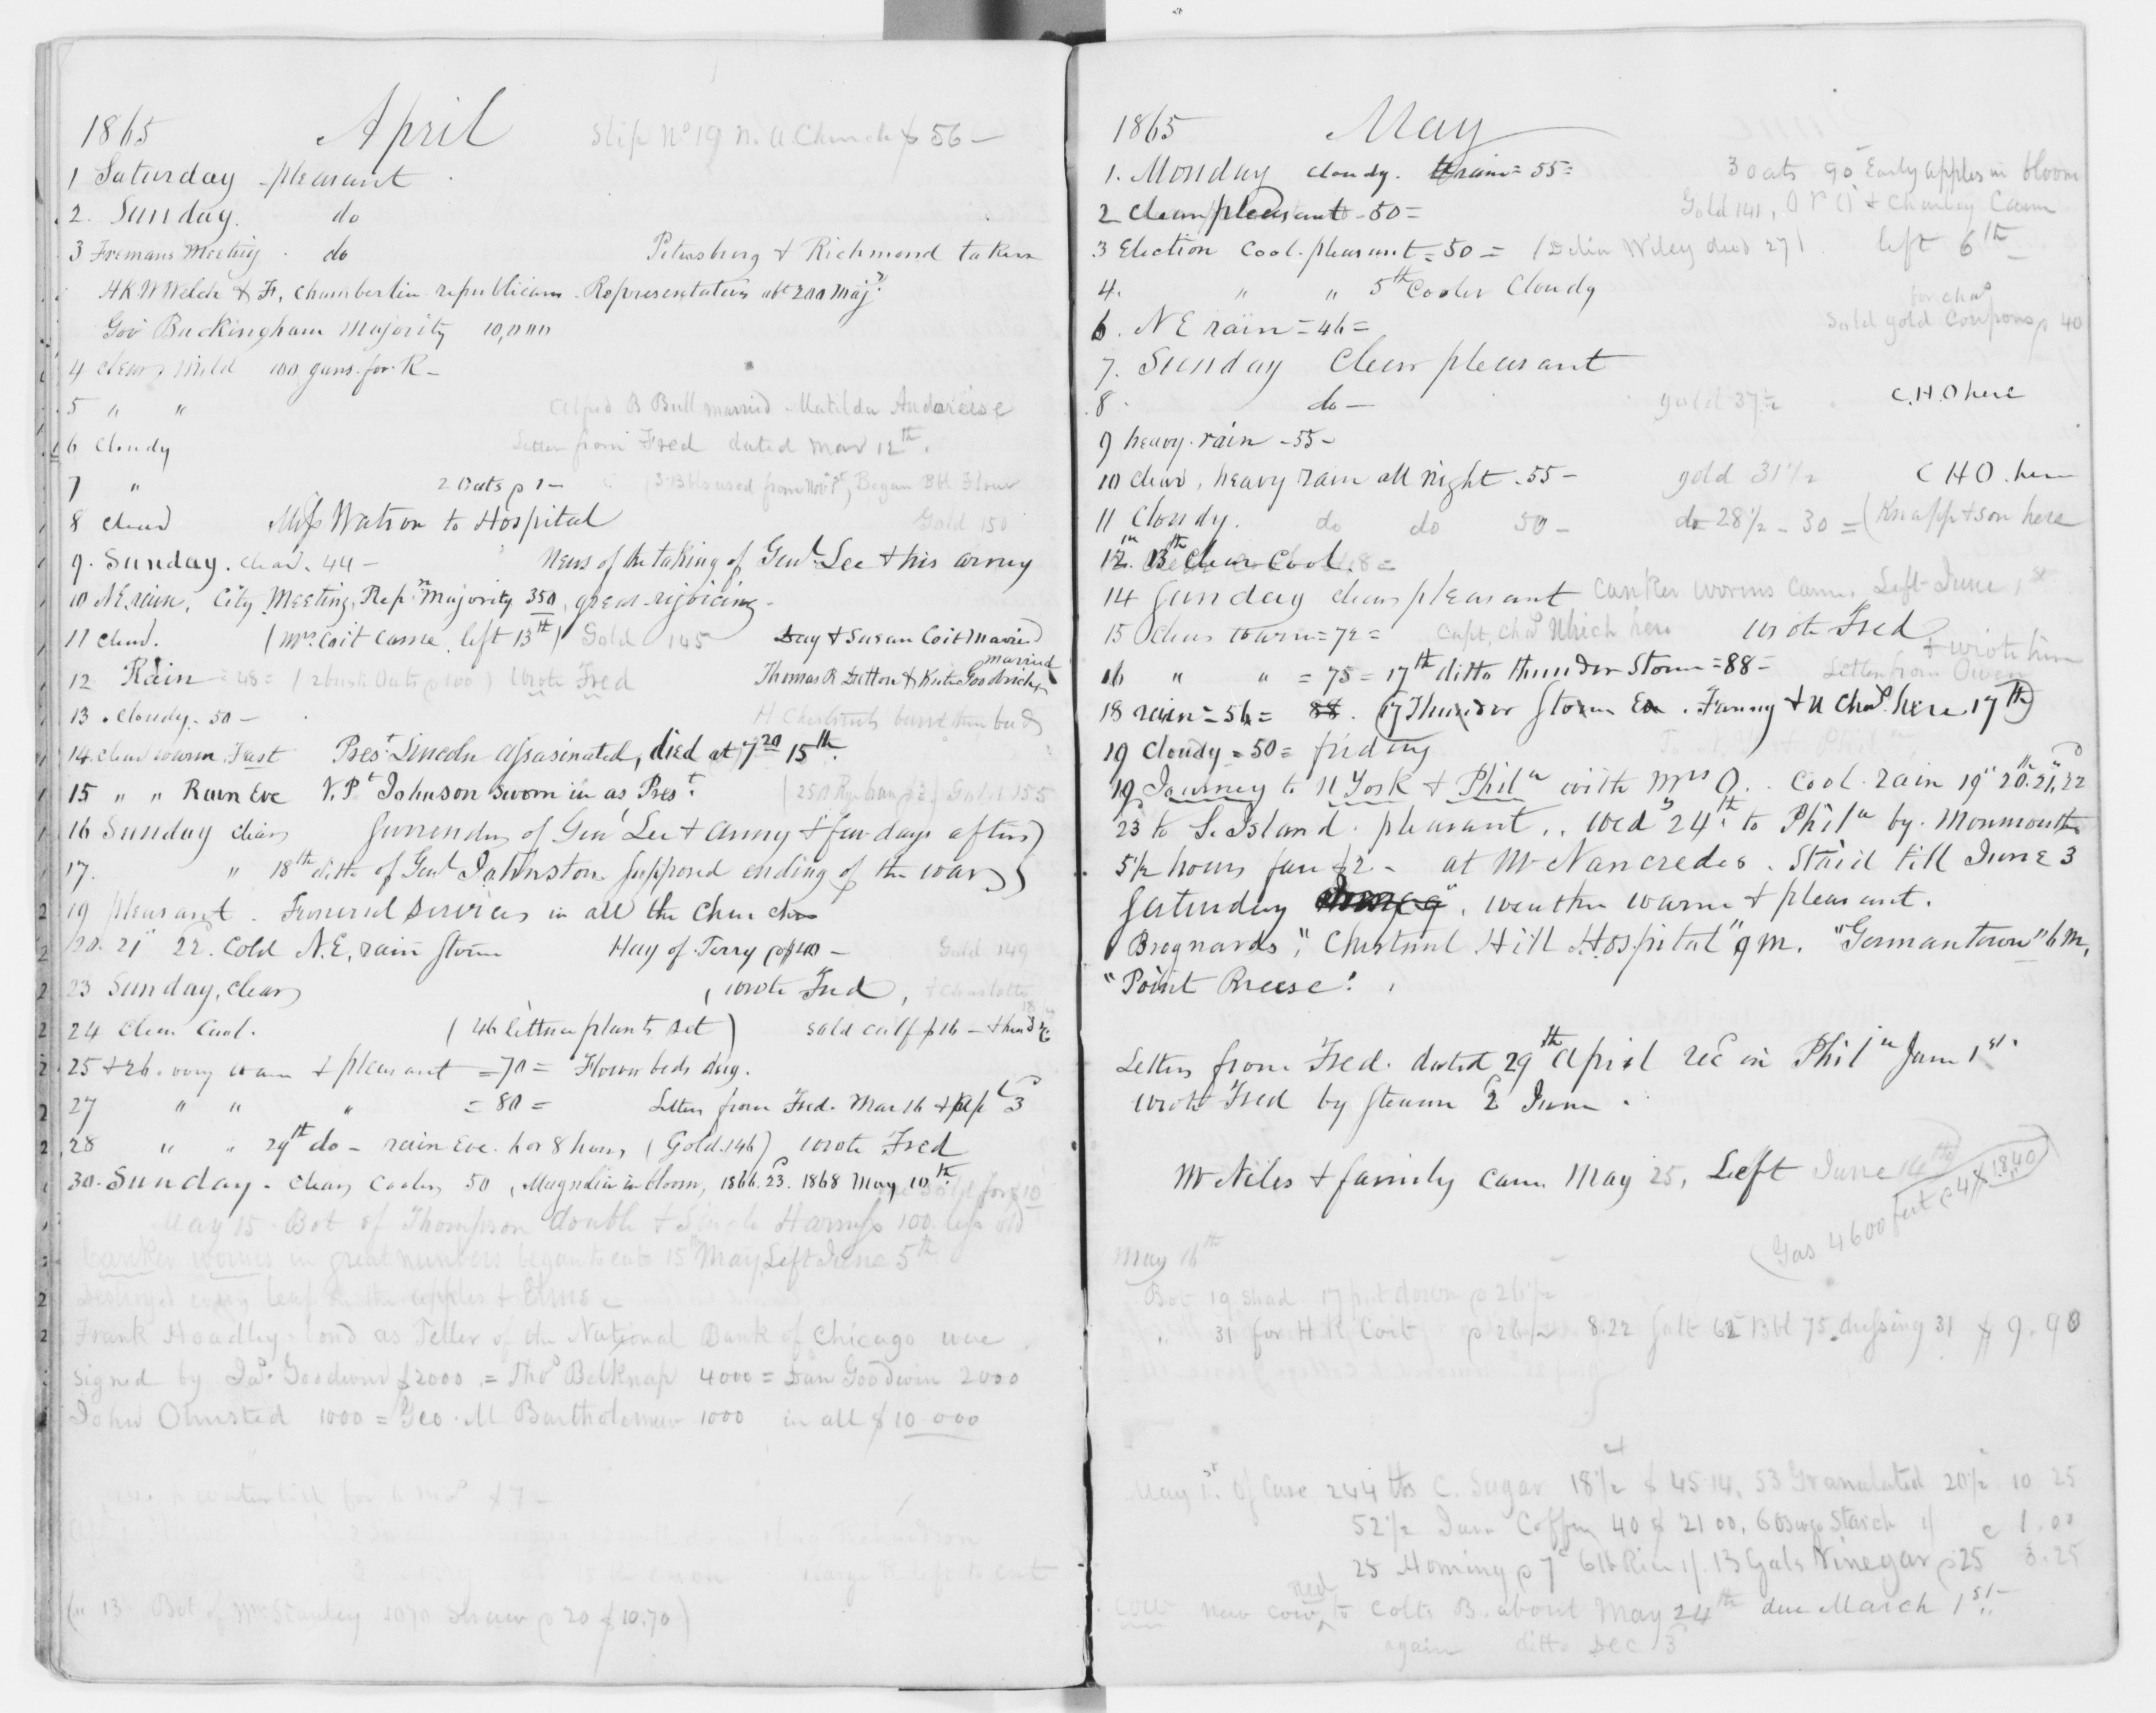 1865 April Slip No 19 N. A. Church $56 —
1 Saturday pleasant
2. Sunday. do
3 Fremans Meeting. do Petersburg & Richmond taken
H K W Welch & F, Chamberlin republican Representatives abt 200 Maj.
Gov Buckingham Majority 10,000
4 clear, Mild 100 guns for R —
5 " " Alfred B Bull married Matilda
6 Cloudy Letter from Fred dated Mar 12th.
7 " 2 Oats p 1 — Began Bbl Flour
8 clear Miss Watson to Hospital Gold 150
9. Sunday. clear. 44 — News of the taking of Genl Lee & his army
10 N E, rain, City Meeting, Repn Majority 350, great rejoicing —
11 clear. (Mrs Coit came, left 13th) Gold 145 Day & Susan Coit Married
12 Rain = 48 = (2 bush Oats p 100) Wrote Fred Thomas R Dutton & Kate Goodrich married
13. Cloudy. 50 — H Chestnuts burst their buds
14. clear warm. Fast Prest Lincoln assasinated, died at 7 20 15th.
15 " " Rain Eve V. Pt Johnson sworn in as Prest. Gold 155
16 Sunday clear Surrender of Genl Lee & army & few days after)
17. " 18th ditto of Genl Johnston supposed ending of the war)
19 pleasant. Funeral Services in all the Churches
20. 21" 22. Cold N.E, rain storm Hay of Terry Gold 149
23 Sunday, clear, wrote Fred, & Charlotte
24 clear Cool. (46 lettuce plants set) sold calf $16 —
25 & 26. very warm & pleasant = 70 = Flower beds dug.
27 " " " = 80 = Letters from Fred. Mar 16 & Apl 3
28 " " 29th do — rain Eve. for 8 hours (Gold 146) wrote Fred
30. Sunday. clear, cooler, 50, Magnolia in bloom, 1866. 23. 1868 May 10th.
May 15. Bot of Thompson double & Single Harness 100. less old one sold for $10
Canker worms in great numbers began to eat 15 May, Left June 5th
Destroyed every leaf on the apples & Elms
Frank Hoadley bond as Teller of the National Bank of Chicago was
signed by Jas. Goodwin $2000 = Thos Belknap 4000 = Dan Goodwin 2000
John Olmsted 1000 = Geo. M Bartholomew 1000 in all $10 000
water bill for 6 mos $7 —
(" 13 Bot of Wm Stanley 1070 straw p 20 $10.70)
1865 May
1. Monday cloudy. rain = 55 = 3 oats 90 Early apples in bloom
2 clear pleasant — 50 = Gold 141, & Charley Came
3 Election Cool. pleasant = 50 = (Delia Wiley died 27) left 6th
4. " " 5th Cooler Cloudy
6. N E rain = 46 = Sold gold Coupons p 40 for Chas
7. Sunday Clear pleasant
8. do — gold 37½ C. H. O here
9 heavy. rain — 55 —
10 clear, heavy rain all night. 55 — gold 31½ C H O. here
11 Cloudy. do do 50 — do 28½ — 30 = (Knapp & son here
12. 13th Clear Cool.
14 Sunday clear pleasant Canker worms came. Left June 1st
15 clear warm = 72 = Capt. Chas here wrote Fred
16 " " = 75 = 17th ditto thunder Storm = 88 = Letter from Owen & wrote him
18 rain = 56 = 88. (17 Thunder Storm Eve. Fanny & U Chas. here 17th)
19 Cloudy = 50 = friday
19 Journey to N York & Phila with Mrs O.. Cool. rain 19" 20th. 21, 22
23 to S. Island. pleasant.. Wed 24th. to Phila by. Monmouth
5½ hours fare $2 — at Mr Nancredes. Staid till June 3
Saturday, weather warm & pleasant.
Brognards", "Chestnut Hill Hospital" 9 m. "Germantown" 6 m,
"Point Breese".
Letters from Fred. dated 29th April recd in Phila June 1st.
wrote Fred by steamr 2 June.
Mr Niles & family came May 25, Left June 14th
(Gas 4600 feet c 4 $18.40)
May 16th
Bot 19 Shad. 17 put down p 26½
" 31 for H K Coit p 26½ 8.22 Salt 62 Bbl 75. dressing 31 $9.90
May 1st. Of Case 244 lbs C. Sugar 18½ $45.14, 53 Granulated 20½ 10 25
52½ Java Coffey 40 $21 00, 6 Starch 1.00
25 Hominy p 7c 6 lb Rice 1/. 13 Gals Vinegar p 25 3.25
cow new cow red to Colts B. about May 24th due March 1st.
again ditto Dec 3